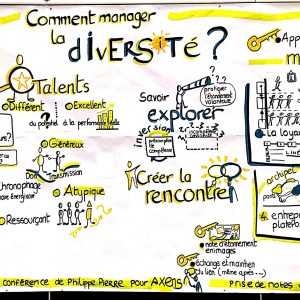 Comment manager
la
diversité ?
Talents
Différent
Excellent
du potentiel à la performance
Généreux
Don
Transmission
Chronophage
Atypique
Ressourçant
Savoir
explorer
pratiquer
l'étonnement
volontaire
inversion
présomption
de
compétence
Créer la
rencontre
note d'étonnement
en images
échange et maintien
du lien (même après...)
App
la loya
archipel
4
entrep
platefo
conférence de Philippe Pierre pour Axens
Prise de notes